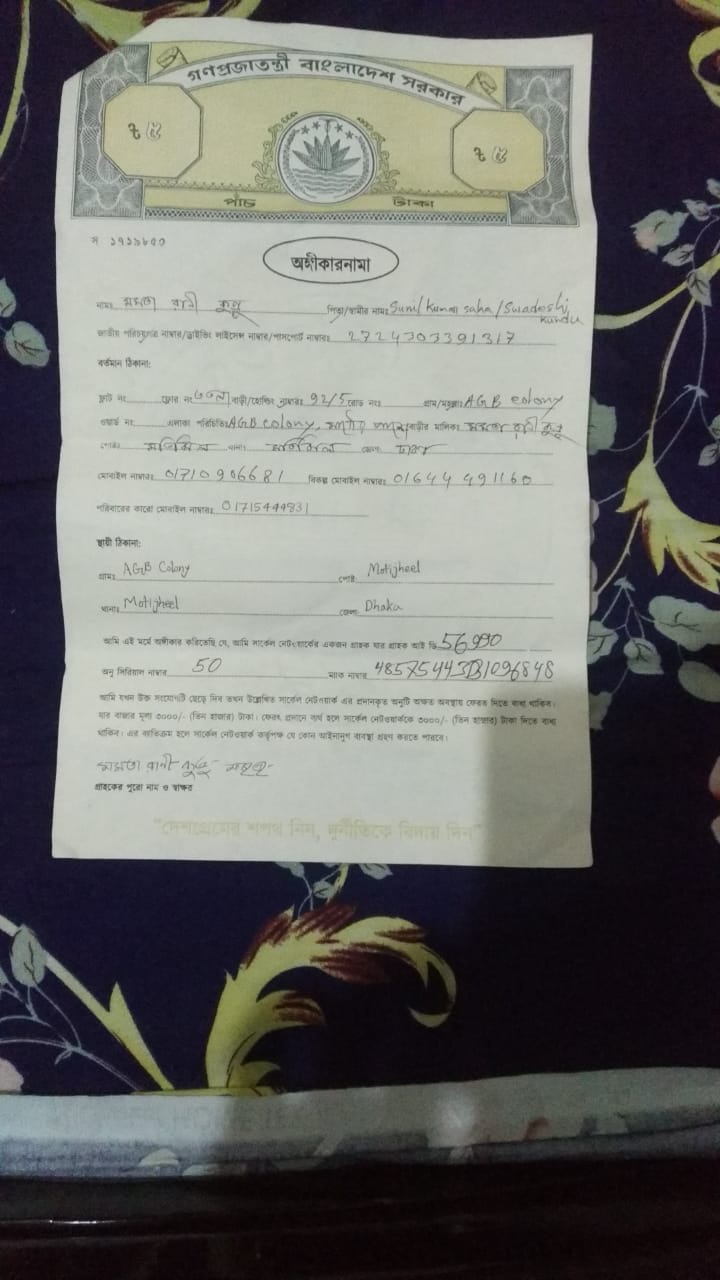 গণপ্রজাতন্ত্রী বাংলাদেশ সরকার
৳ ৫ ৳ ৫
পাঁচ টাকা
স ১৭১৯৮৫৩
অঙ্গীকারনামা
নামঃ মমতা রানী কুন্ডু পিতা/স্বামীর নামঃ Sunil Kumar saha/Swadesh Kundu
জাতীয় পরিচয়পত্র নাম্বার/ড্রাইভিং লাইসেন্স নাম্বার/পাসপোর্ট নাম্বারঃ 2724303391317
বর্তমান ঠিকানা:
ফ্লাট নং ফ্লোর নং বাড়ী/হোল্ডিং নাম্বারঃ 92/5 রোড নং গ্রাম/মহল্লাঃ AGB colony
ওয়ার্ড নং এলাকা পরিচিতিঃ AGB colony, মাঠের পাশে বাড়ীর মালিকঃ মমতা রানী কুন্ডু
পোষ্টঃ মতিঝিল থানাঃ মতিঝিল জেলাঃ ঢাকা
মোবাইল নাম্বারঃ 01710906681 বিকল্প মোবাইল নাম্বারঃ 01644491160
পরিবারের কারো মোবাইল নাম্বারঃ 01715444831
স্থায়ী ঠিকানা:
গ্রামঃ AGB Colony পোষ্টঃ Motijheel
থানাঃ Motijheel জেলাঃ Dhaka
আমি এই মর্মে অঙ্গীকার করিতেছি যে, আমি সার্কেল নেটওয়ার্কের একজন গ্রাহক যার গ্রাহক আই ডি 56990
অনু সিরিয়াল নাম্বার 50 ম্যাক নাম্বার
আমি যখন উক্ত সংযোগটি ছেড়ে দিব তখন উল্লেখিত সার্কেল নেটওয়ার্ক এর প্রদানকৃত অনুটি অক্ষত অবস্থায় ফেরত দিতে বাধ্য থাকিব।
যার বাজার মূল্য ৩০০০/- (তিন হাজার) টাকা। ফেরৎ প্রদানে ব্যর্থ হলে সার্কেল নেটওয়ার্ককে ৩০০০/- (তিন হাজার) টাকা দিতে বাধ্য
থাকিব। এর ব্যতিক্রম হলে সার্কেল নেটওয়ার্ক কর্তৃপক্ষ যে কোন আইনানুগ ব্যবস্থা গ্রহণ করতে পারবে।
মমতা রানী কুন্ডু
গ্রাহকের পুরো নাম ও স্বাক্ষর
"দেশপ্রেমের শপথ নিন, দুর্নীতিকে বিদায় দিন"